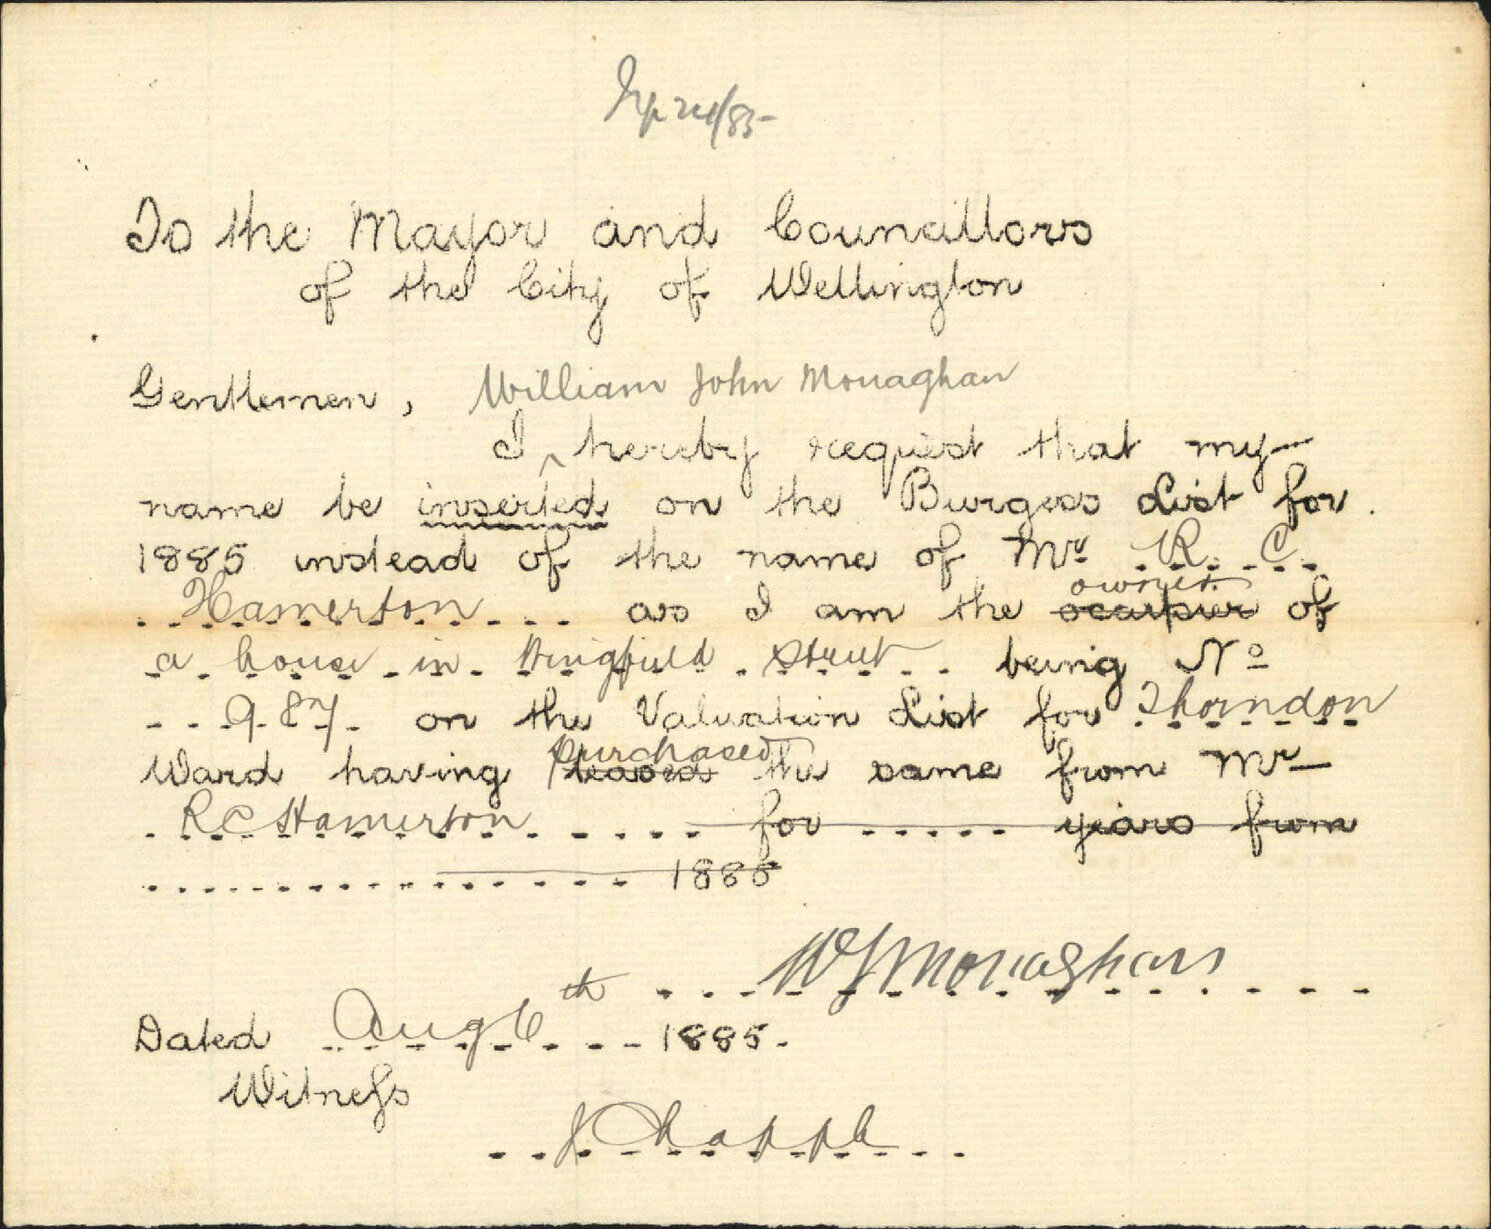 To the Mayor and Councillors
of the City of Wellington
Gentlemen, William John Monaghan
I hereby request that my
name be inserted on the Burgess List for
1885 instead of the name of Mr R. C.
Hamerton as I am the occupier owner of
a house in Wingfield Street being No
987 on the Valuation List for Thorndon
Ward having leased purchased the same from Mr
R C Hamerton for years from
1885
W J Monaghan
Dated Aug 6th 1885.
Witness
J Chapple